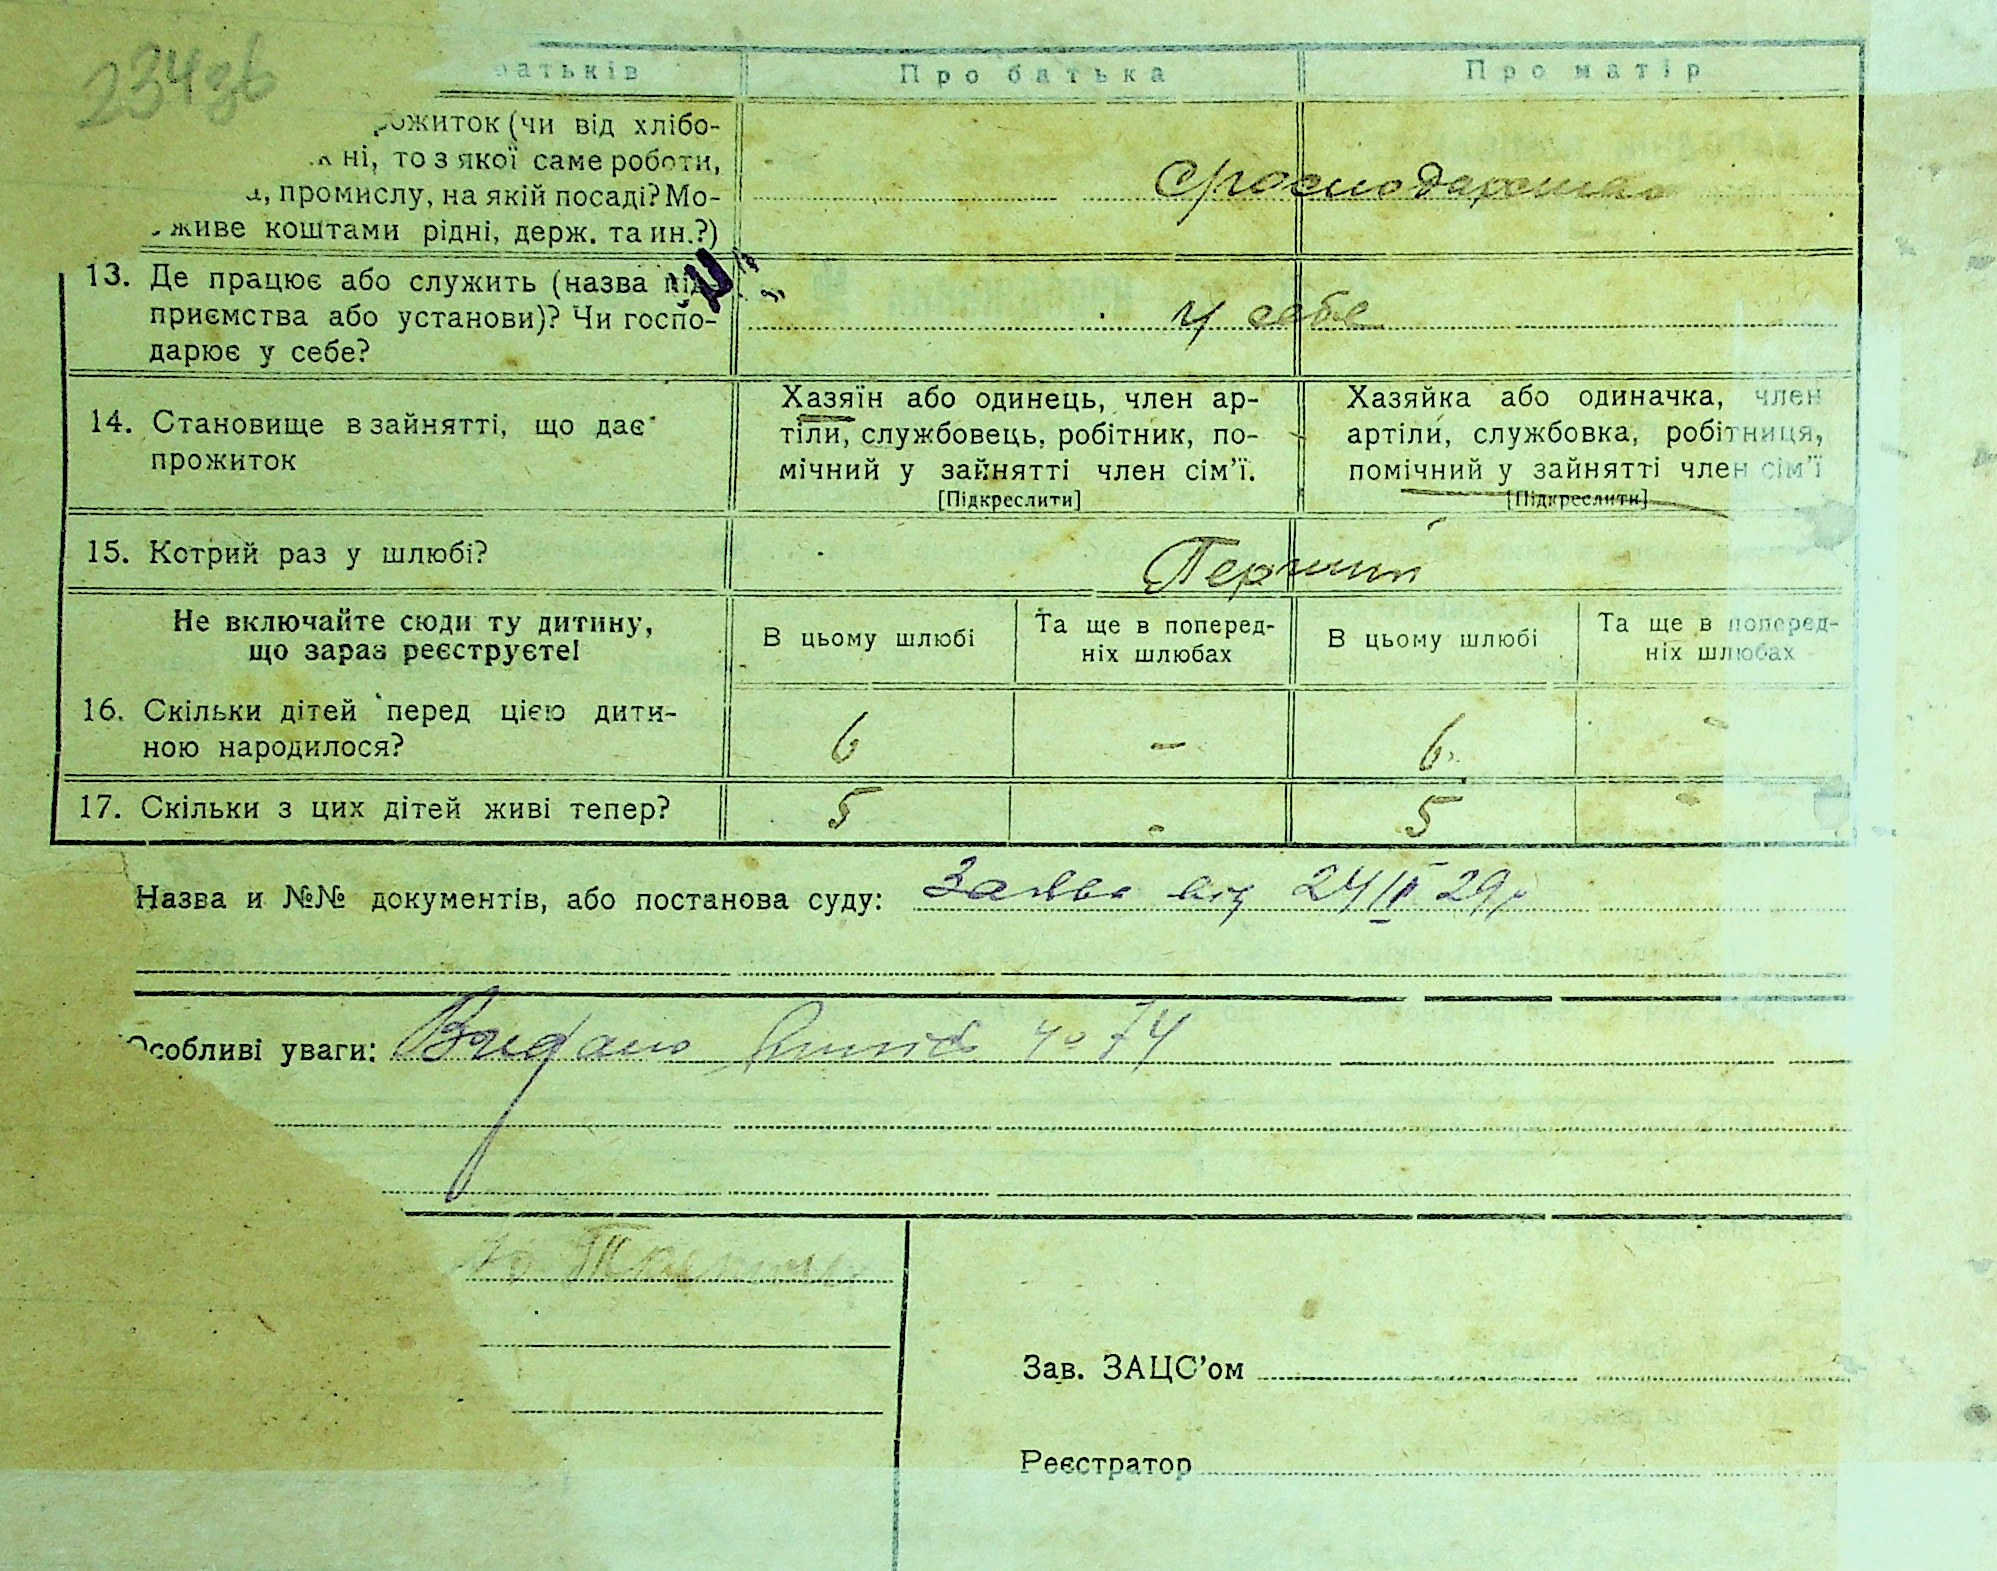 234зв
батьків Про батька Про матір
рожиток (чи від хлібо-
ні, то з якої саме роботи,
, промислу, на якій посаді? Мо-
живе коштами рідні, держ. та ин.?)
13. Де працює або служить (назва під-
приємства або установи)? Чи госпо-
дарює у себе?
у себе
14. Становище в зайнятті, що дає
прожиток
Хазяїн або одинець, член ар-
тіли, службовець, робітник, по-
мічний у зайнятті член сім’ї.
[Підкреслити]
Хазяйка або одиначка, член
артіли, службовка, робітниця,
помічний у зайнятті член сім’ї
[Підкреслити]
15. Котрий раз у шлюбі?
Перший
Не включайте сюди ту дитину,
що зараз реєструєте!
В цьому шлюбі
Та ще в поперед-
ніх шлюбах
В цьому шлюбі
Та ще в поперед-
ніх шлюбах
16. Скільки дітей перед цією дити-
ною народилося?
6 - 6 -
17. Скільки з цих дітей живі тепер?
5 - 5 -
Назва и №№ документів, або постанова суду: Заява від 24/II 29р
Особливі уваги: Видано 74
Зав. ЗАЦС’ом
Реєстратор